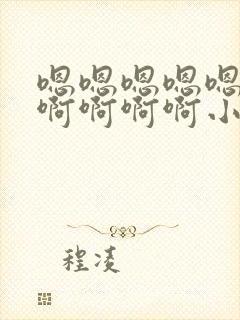 嗯嗯嗯嗯嗯
啊啊啊啊小
程凌